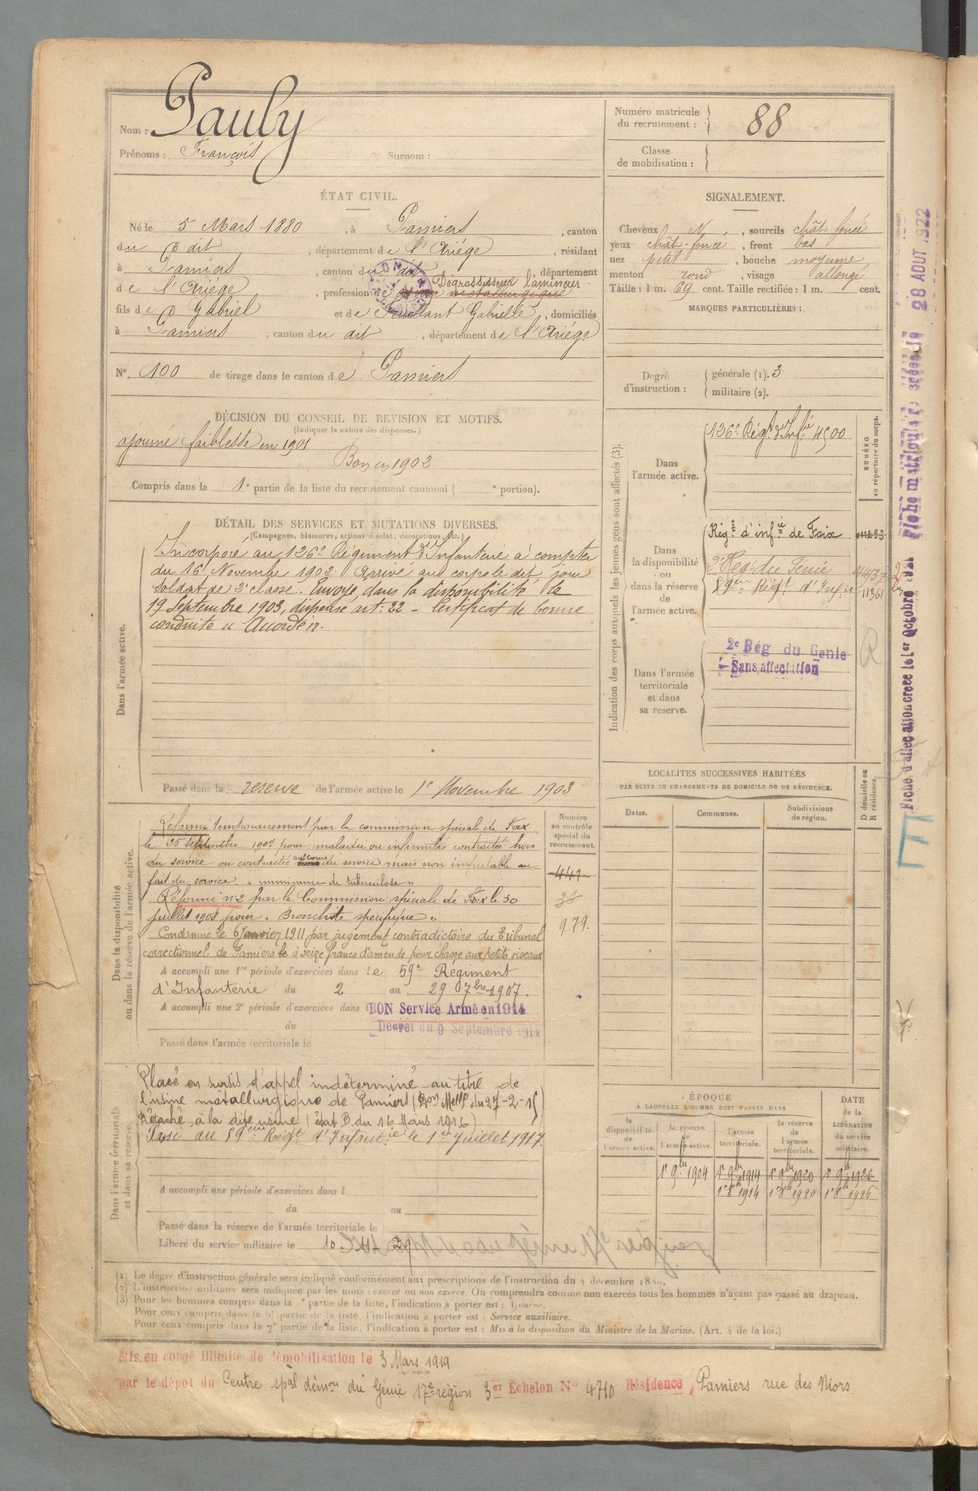 Nom : Pauly
Prénoms : François Surnom :
Numéro matricule du recrutement : 88
Classe de mobilisation :
ÉTAT CIVIL.
Né le 5 Mars 1880, à Pamiers, canton
du dit, département de l'Ariège, résidant
à Pamiers, canton du dit, département
de l'Ariège, profession de Dégrossisseur lamineur
fils de Gabriel et de Gabrielle, domiciliés
à Pamiers, canton du dit, département de l'Ariège
N° 100 de tirage dans le canton de Pamiers
SIGNALEMENT.
Cheveux N, sourcils chât foncé
yeux chât. foncé, front bas
nez petit, bouche moyenne
menton rond, visage allongé
Taille : 1 m. 69 cent. Taille rectifiée : 1 m. cent.
MARQUES PARTICULIÈRES :
Degré d'instruction : générale (1). 3
militaire (2).
DÉCISION DU CONSEIL DE REVISION ET MOTIFS.
(Indiquer la nature des dispenses.)
ajourné faiblesse en 1901
Bon en 1902
Compris dans la 1e partie de la liste du recrutement cantonal ( e portion).
DÉTAIL DES SERVICES ET MUTATIONS DIVERSES.
(Campagnes, blessures, actions d'éclat, décorations, etc.)
Dans l'armée active.
Incorporé au 126e Régiment d'Infanterie à compter
du 16 Novembre 1902. Arrivé au corps le dit jour
soldat de 2e classe. Envoyé dans la disponibilité le
19 Septembre 1903, dispensé art. 22 - Certificat de bonne
conduite "Accordé".
Passé dans la réserve de l'armée active le 1er Novembre 1903
Indication des corps auxquels les jeunes gens sont affectés (3).
NUMÉRO au répertoire du corps.
Dans l'armée active.
126e Régt d'Infie 4500
Dans la disponibilité ou dans la réserve de l'armée active.
Régt d'infie de Foix
2e Reg du Génie
59ème Régt d'Infie
Dans l'armée territoriale et dans sa réserve.
2e Rég du Genie
Sans affectation
R
LOCALITÉS SUCCESSIVES HABITÉES
PAR SUITE DE CHANGEMENTS DE DOMICILE OU DE RÉSIDENCE.
Dates. Communes. Subdivisions de région. D domicile ou R résidence.
Dans la disponibilité ou dans la réserve de l'armée active.
Numéro au contrôle spécial du recrutement.
Réformé temporairement par la commission spéciale de Foix
le 25 Septembre 1907 pour maladie ou infirmités contractées hors
du service ou contractée au cours du service mais non imputable au
fait du service " imminence de tuberculose "
Réformé n° 2 par la Commission spéciale de Foix le 30
juillet 1908 pour " Bronchite spécifique "
Condamné le 6 Janvier 1911 par jugement contradictoire du Tribunal
correctionnel de Pamiers à seize francs d'amende pour chasse aux petits oiseaux
449
979.
A accompli une 1re période d'exercices dans le 59e Régiment
d'Infanterie du 2 au 29 7bre 1907.
A accompli une 2e période d'exercices dans l
du
BON Service Armé en 1914
Décret du 9 Septembre 1914
Passé dans l'armée territoriale le
Dans l'armée territoriale et dans sa réserve.
Placé en sursis d'appel indéterminé au titre de
l'usine métallurgique de Pamiers (Don Melle du 27-2-15)
Détaché à la dite usine (état B. du 16 Mars 1916)
Passé au 59ème Régt d'Infantie le 1er Juillet 1917.
A accompli une période d'exercices dans l
du au
Passé dans la réserve de l'armée territoriale le
Libéré du service militaire le 10 Oct 29
ÉPOQUE
À LAQUELLE L'HOMME DOIT PASSER DANS
la disponibilité de l'armée active. la réserve de l'armée active. l'armée territoriale. la réserve de l'armée territoriale. DATE de la LIBÉRATION du service militaire.
1er 9bre 1904 1er 9bre 1914 1er 9bre 1920 1er 9bre 1926
1er 8bre 1914 1er 8bre 1920 1er 8bre 1926
(1) Le degré d'instruction générale sera indiqué conformément aux prescriptions de l'instruction du 4 décembre 1889.
(2) L'instruction militaire sera indiquée par les mots : exercé ou non exercé. On comprendra comme non exercés tous les hommes n'ayant pas passé au drapeau.
(3) Pour les hommes compris dans la partie de la liste, l'indication à porter est :
Pour ceux compris dans la partie de la liste, l'indication à porter est : Service auxiliaire.
Pour ceux compris dans la 7e partie de la liste, l'indication à porter est : Mis à la disposition du Ministre de la Marine. (Art. 4 de la loi.)
Mis en congé illimité de démobilisation le 3 Mars 1919
par le dépôt du Centre spal démon du Génie 17e région 3er Echelon No 4710 Résidence, Pamiers rue des Niors
Fiche d'affectation créée le 1er Octobre 1921
Fiche matricule créée le 28 AOUT 1922